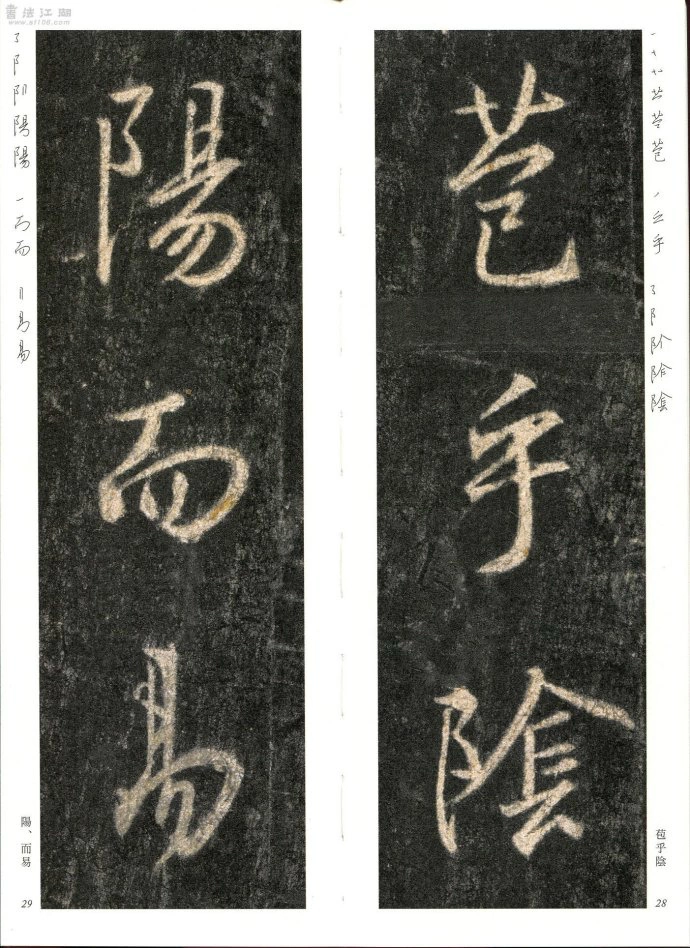 書法江湖
www.sf108.com
苞乎陰
苞乎陰
28
陽而易
陽、而易
29